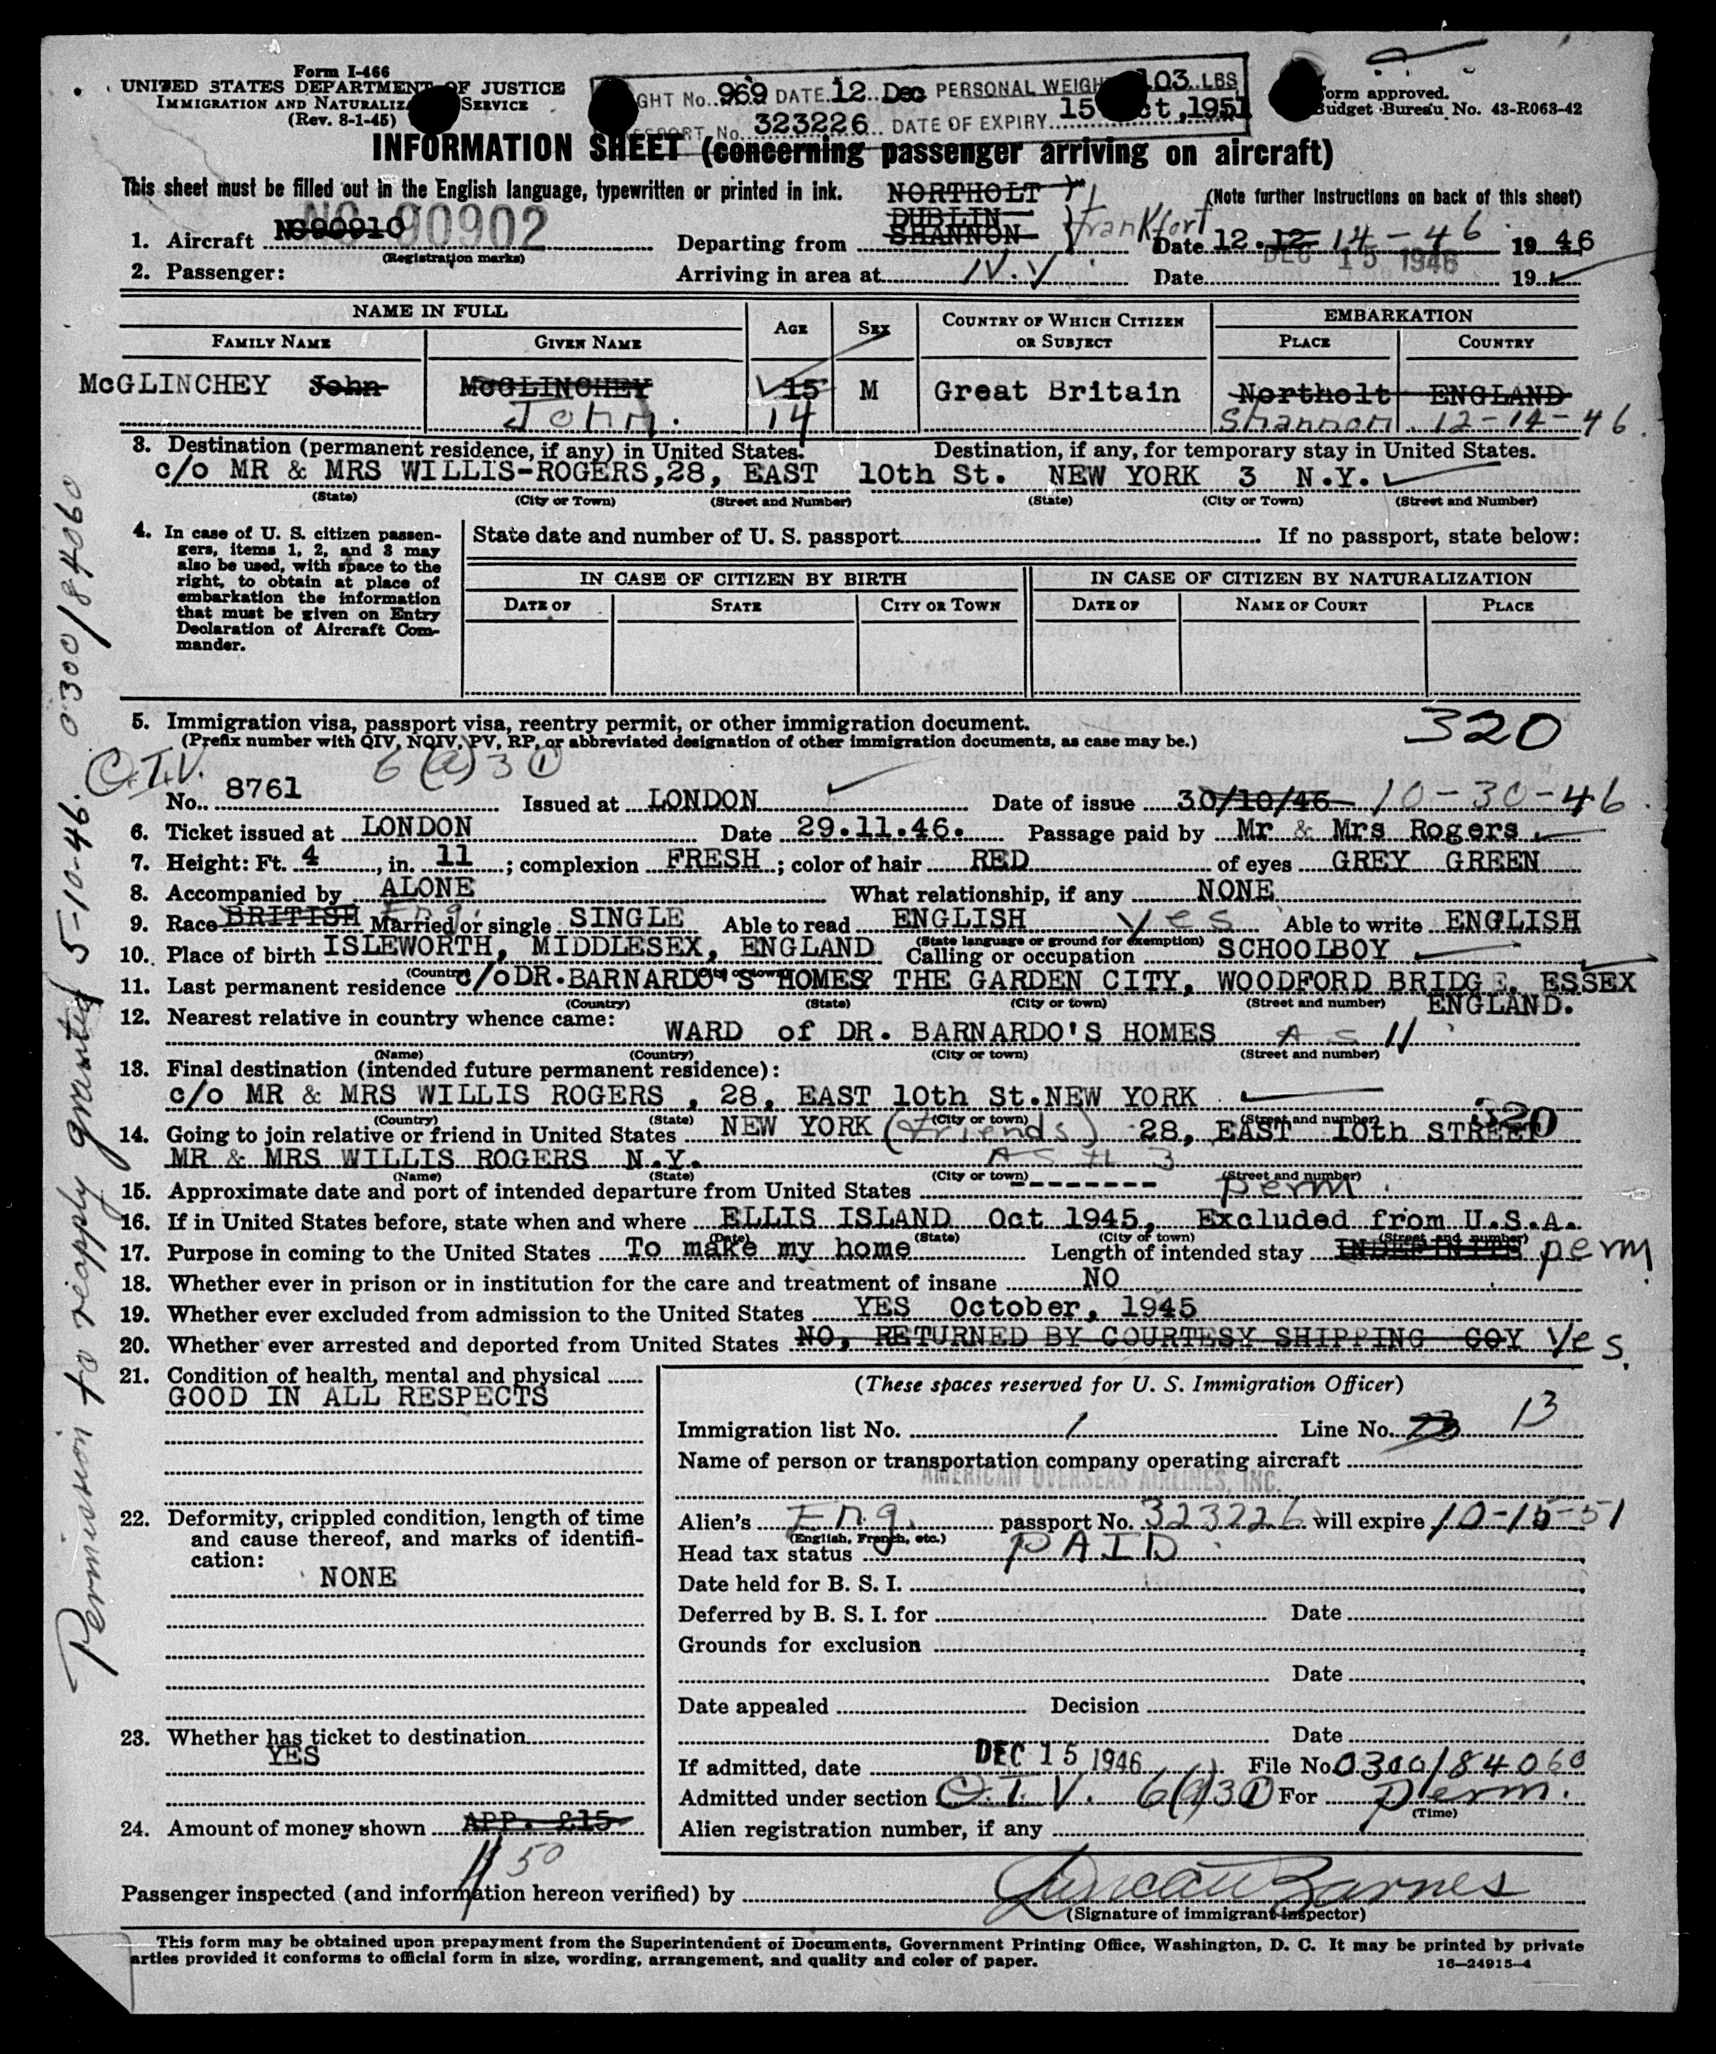 Form I-466
UNITED STATES DEPARTMENT OF JUSTICE
IMMIGRATION AND NATURALIZA SERVICE
(Rev. 8-1-45)
GHT No. 969 DATE 12 Dec PERSONAL WEIGH 103 LBS
SPORT No. 323226 DATE OF EXPIRY 15 ct, 1951
orm approved.
Budget Bureau No. 43-R063-42
INFORMATION SHEET (concerning passenger arriving on aircraft)
This sheet must be filled out in the English language, typewritten or printed in ink.
(Note further instructions on back of this sheet)
NORTHOLT
DUBLIN
SHANNON
Frankfort
1. Aircraft NC90910 NC 90902 Departing from Date 12.12- 14-46 19 46
(Registration marks)
DEC 15 1946
2. Passenger: Arriving in area at N.Y. Date 19
NAME IN FULL AGE SEX COUNTRY OF WHICH CITIZEN OR SUBJECT EMBARKATION
FAMILY NAME GIVEN NAME PLACE COUNTRY
McGLINCHEY John McGLINCHEY 15 M Great Britain Northolt ENGLAND
John. 14 Shannon 12-14-46.
3. Destination (permanent residence, if any) in United States. Destination, if any, for temporary stay in United States.
c/o MR & MRS WILLIS-ROGERS,28, EAST 10th St. NEW YORK 3 N.Y.
(State) (City or Town) (Street and Number) (State) (City or Town) (Street and Number)
4. In case of U. S. citizen passen-
gers, items 1, 2, and 3 may
also be used, with space to the
right, to obtain at place of
embarkation the information
that must be given on Entry
Declaration of Aircraft Com-
mander.
State date and number of U. S. passport. If no passport, state below:
IN CASE OF CITIZEN BY BIRTH IN CASE OF CITIZEN BY NATURALIZATION
DATE OF STATE CITY OR TOWN DATE OF NAME OF COURT PLACE
5. Immigration visa, passport visa, reentry permit, or other immigration document.
320
(Prefix number with QIV, NQIV, PV, RP, or abbreviated designation of other immigration documents, as case may be.)
C.I.V. 6(a)3 1
No. 8761 Issued at LONDON Date of issue 30/10/46 10-30-46.
6. Ticket issued at LONDON Date 29.11.46. Passage paid by Mr & Mrs Rogers
7. Height: Ft. 4, in. 11; complexion FRESH; color of hair RED of eyes GREY GREEN
8. Accompanied by ALONE What relationship, if any NONE
9. Race BRITISH Eng. Married or single SINGLE Able to read ENGLISH Yes Able to write ENGLISH
(State language or ground for exemption)
10. Place of birth ISLEWORTH, MIDDLESEX, ENGLAND Calling or occupation SCHOOLBOY
(Country) (City or town)
11. Last permanent residence c/o DR. BARNARDO'S HOMES THE GARDEN CITY, WOODFORD BRIDGE, ESSEX
(Country) (State) (City or town) (Street and number) ENGLAND.
12. Nearest relative in country whence came:
WARD of DR. BARNARDO'S HOMES AS 11
(Name) (Country) (City or town) (Street and number)
13. Final destination (intended future permanent residence):
c/o MR & MRS WILLIS ROGERS , 28, EAST 10th St.NEW YORK
(Country) (State) (City or town) (Street and number) 320
14. Going to join relative or friend in United States NEW YORK (Friends) 28, EAST 10th STREET
MR & MRS WILLIS ROGERS N.Y. AS # 3
(Name) (State) (City or town) (Street and number)
15. Approximate date and port of intended departure from United States -------- perm.
16. If in United States before, state when and where ELLIS ISLAND Oct 1945, Excluded from U.S.A.
(Date) (State) (City or town) (Street and number)
17. Purpose in coming to the United States To make my home Length of intended stay INDEFINITE perm.
18. Whether ever in prison or in institution for the care and treatment of insane NO
19. Whether ever excluded from admission to the United States YES October, 1945
20. Whether ever arrested and deported from United States NO, RETURNED BY COURTESY SHIPPING COY Yes.
21. Condition of health, mental and physical
GOOD IN ALL RESPECTS
22. Deformity, crippled condition, length of time
and cause thereof, and marks of identifi-
cation:
NONE
23. Whether has ticket to destination
YES
24. Amount of money shown APP. £15
$ 50
(These spaces reserved for U. S. Immigration Officer)
Immigration list No. 1 Line No. 23 13
Name of person or transportation company operating aircraft
AMERICAN OVERSEAS AIRLINES, INC.
Alien's Eng. passport No. 323226 will expire 10-15-51
(English, French, etc.)
Head tax status PAID
Date held for B. S. I.
Deferred by B. S. I. for Date
Grounds for exclusion
Date
Date appealed Decision
Date
If admitted, date DEC 15 1946 File No. 0300/84060
Admitted under section C.I.V. 6(a)3 1 For perm.
(Time)
Alien registration number, if any
Passenger inspected (and information hereon verified) by Duncan Barnes
(Signature of immigrant inspector)
This form may be obtained upon prepayment from the Superintendent of Documents, Government Printing Office, Washington, D. C. It may be printed by private
arties provided it conforms to official form in size, wording, arrangement, and quality and color of paper.
16-24915-4
Permission to reapply granted 5-10-46. 0300/84060